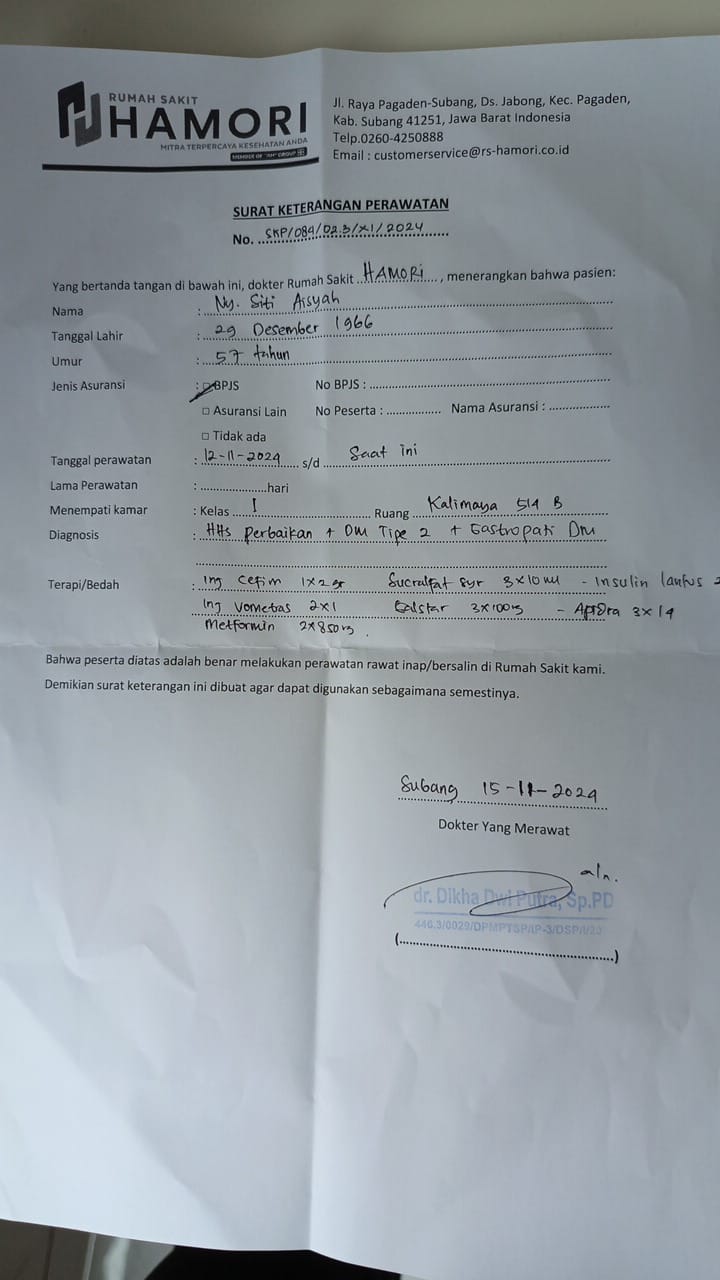 RUMAH SAKIT
HAMORI
MITRA TERPERCAYA KESEHATAN ANDA
MEMBER OF "AM" GROUP
Jl. Raya Pagaden-Subang, Ds. Jabong, Kec. Pagaden,
Kab. Subang 41251, Jawa Barat Indonesia
Telp.0260-4250888
Email : customerservice@rs-hamori.co.id
SURAT KETERANGAN PERAWATAN
No. SKP/084/02.3/XI/2024
Yang bertanda tangan di bawah ini, dokter Rumah Sakit HAMORI, menerangkan bahwa pasien:
Nama : Ny. Siti Aisyah
Tanggal Lahir : 29 Desember 1966
Umur : 57 tahun
Jenis Asuransi : BPJS No BPJS :
Asuransi Lain No Peserta : Nama Asuransi :
Tidak ada
Tanggal perawatan : 12-11-2024 s/d Saat ini
Lama Perawatan : hari
Menempati kamar : Kelas I Ruang Kalimaya 514 B
Diagnosis : HHS perbaikan + DM Tipe 2 + Gastropati DM
Terapi/Bedah : Inj cefim 1x2 gr Sucralfat syr 3x10 ml - Insulin lantus
Inj Vometras 2x1 3x100 - 3x14
Metformin 2x850
Bahwa peserta diatas adalah benar melakukan perawatan rawat inap/bersalin di Rumah Sakit kami.
Demikian surat keterangan ini dibuat agar dapat digunakan sebagaimana semestinya.
Subang 15-11-2024
Dokter Yang Merawat
a/n.
dr. Dikha Dwi Putra, Sp.PD
(.....)